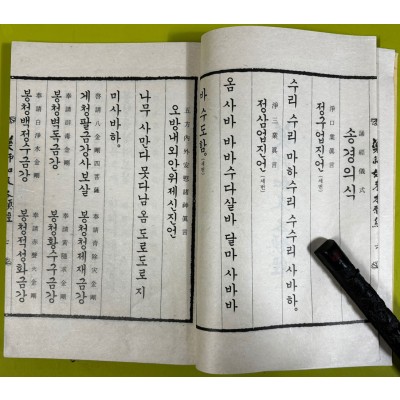 誦經儀式
송경의식
淨口業眞言
정구업진언 (세번)
수리 수리 마하수리 수수리 사바하。
淨三業眞言
정삼업진언 (세번)
옴 사바 바바수다살바 달마 사바바
바 수도함。 (세번)
五方內外安慰諸神眞言
오방내외안위제신진언
나무 사만다 못다남 옴 도로도로 지
미사바하。
奉請八金剛四菩薩
계청팔금강사보살
奉請青除災金剛
봉청청제재금강
奉請碧毒金剛
봉청벽독금강
奉請黃隨求金剛
봉청황수구금강
奉請白淨水金剛
봉청백정수금강
奉請赤聲火金剛
봉청적성화금강